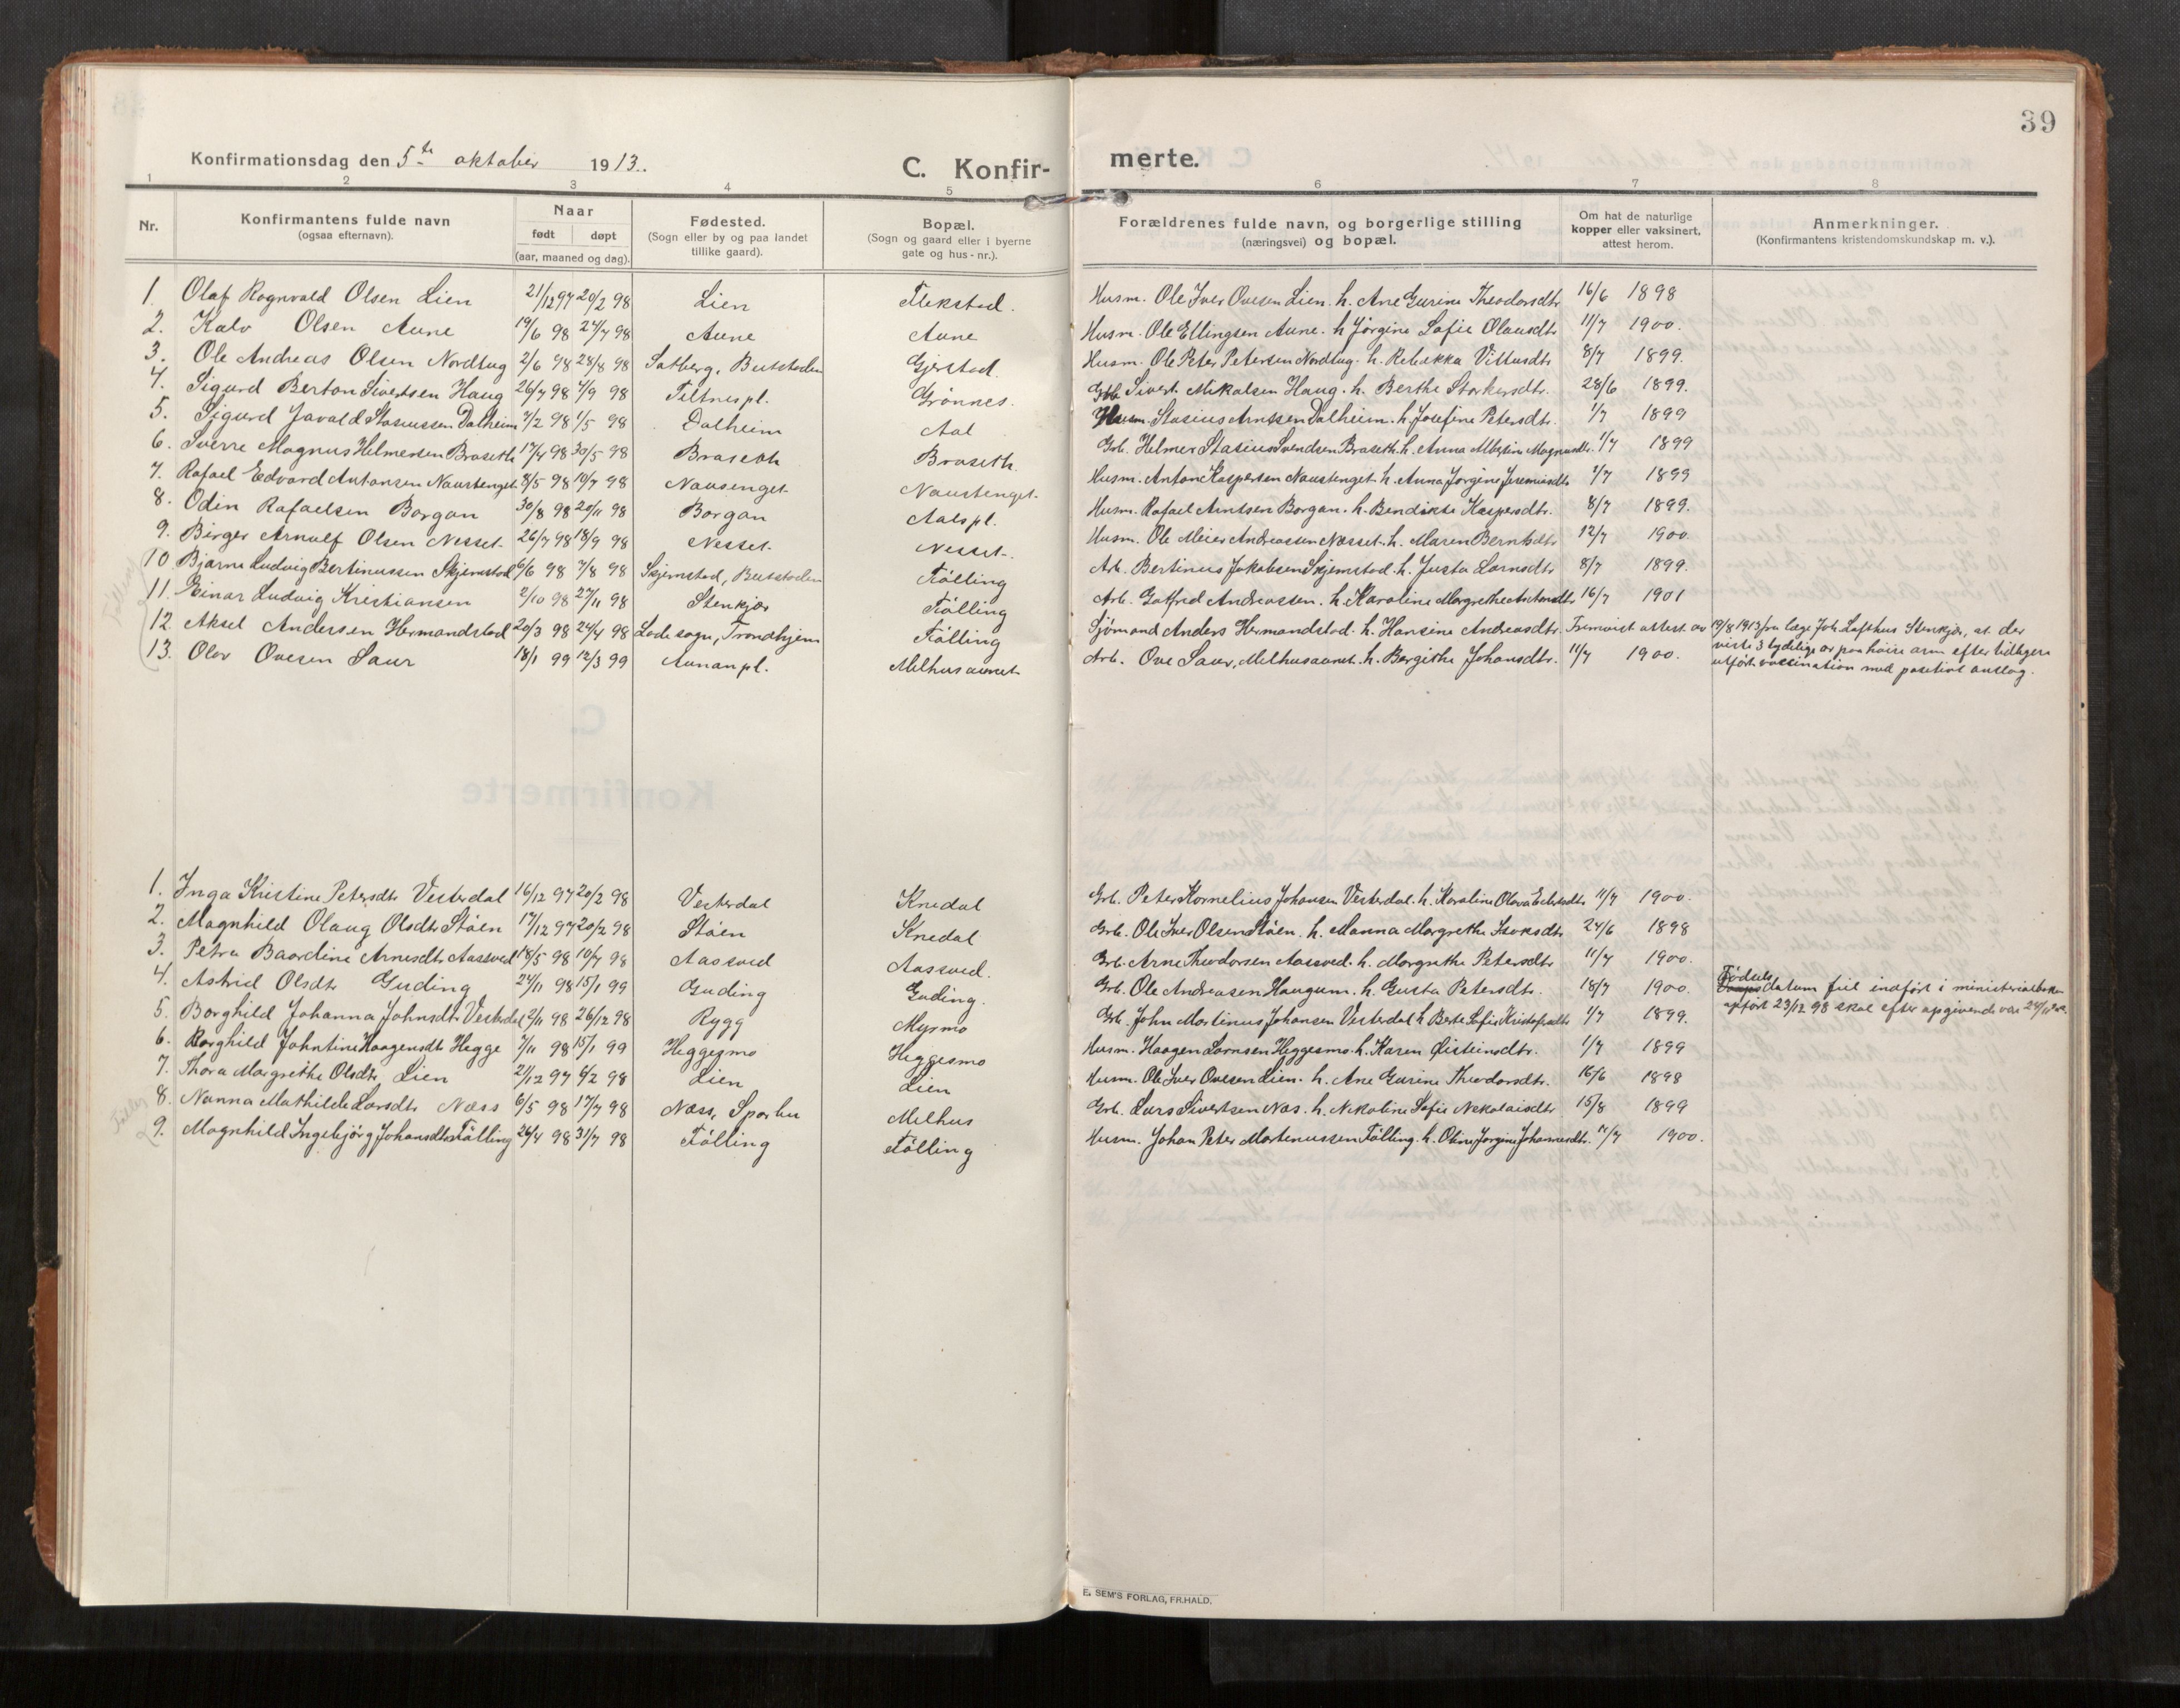 39
Konfirmationsdag den 5te oktober 1913.
C. Konfir-
merte.
1 2 3 4 5 6 7 8
Nr.
Konfirmantens fulde navn
(ogsaa efternavn).
Naar
født døpt
(aar, maaned og dag).
Fødested.
(Sogn eller by og paa landet
tillike gaard).
Bopæl.
(Sogn og gaard eller i byerne
gate og hus-nr.).
Forældrenes fulde navn, og borgerlige stilling
(næringsvei) og bopæl.
Om hat de naturlige
kopper eller vaksinert,
attest herom.
Anmerkninger.
(Konfirmantens kristendomskundskap m. v.).
1. Olaf Ragnvald Olsen Lien 21/12 97 20/2 98 Lien Flekstad. Husm. Ole Iver Ovesen Lien. h. Ane Gurine Theodorsdtr 16/6 1898
2. Kalv Olsen Aune 19/6 98 24/7 98 Aune Aune Husm. Ole Ellingsen Aune. h Jörgine Sofie Olausdtr 11/7 1900.
3. Ole Andreas Olsen Nordtug 2/6 98 28/8 98 Satberg, Beitstaden Gjerstad. Husm. Ole Peter Petersen Nordtug. h. Rebekka Vittusdtr 8/7 1899.
4. Sigurd Berton Sivertsen Haug 26/7 98 4/9 98 Tiltnes pl. Grönnes. Grb. Sivert Mikalsen Haug. h. Berthe Storkersdtr. 28/6 1899.
5. Sigurd Javald Stasiussen Dalheim 7/2 98 1/5 98 Dalheim Aal Husm. Stasius Arntsen Dalheim. h. Josefine Petersdtr. 1/7 1899
6. Sverre Magnus Helmersen Braseth 17/4 98 30/5 98 Braseth Braseth. Grb. Helmer Stasius Svendsen Braseth. h. Anna Albertine Magnusdtr. 1/7 1899
7. Rafael Edvard Antonsen Naustenget 8/5 98 10/7 98 Nausenget. Naustenget. Husm. Anton Kaspersen Naustenget. h. Anna Jörgine Jeremiasdtr 1/7 1899
8. Odin Rafaelsen Borgan 30/8 98 20/11 98 Borgan Aals pl. Husm. Rafael Arntsen Borgan. h. Bendikte Kaspersdtr. 8/7 1899.
9. Birger Arnulf Olsen Nesset. 26/7 98 18/9 98 Nesset. Nesset. Husm. Ole Meier Andreassen Næsset. h. Maren Berntsdtr 12/7 1900
10 Bjarne Ludvig Bertinussen Skjemstad 6/6 98 7/8 98 Skjemstad, Beitstaden Fölling Arb. Bertinus Jakobsen Skjemstad. h. Justa Larsdtr 8/7 1899.
11. Einar Ludvig Kristiansen 2/10 98 27/11 98 Stenkjær Fölling Arb. Gotfred Andreassen. h. Karoline Margrethe Antonsdtr 16/7 1901
12. Aksel Andersen Hermandstad 20/3 98 24/4 98 Lade sogn, Trondhjem Fölling Sjömand Anders Hermandstad. h. Hansine Andreasdtr. Fremvist attest av 19/8 1913 fra læge Joh. Lofthus Stenkjær, at der
viste 3 tydelige ar paa höire arm efter tidligere
utfört vaccination med positivt anslag.
13. Olav Ovesen Saur 18/1 99 12/3 99 Aunan pl. Melhusaunet Arb. Ove Saur, Melhusaunet. h. Bergithe Johansdtr. 11/7 1900.
1. Inga Kristine Petersdtr Vesterdal 16/12 97 20/2 98 Vesterdal Knedal Grb. Peter Kornelius Johansen Vesterdal. h. Karoline Olava 11/7 1900.
2. Magnhild Olaug Olsdtr Stöen 17/12 97 20/2 98 Stöen Knedal Grb. Ole Iver Olsen Stöen. h. Manna Margrethe Isaksdtr 24/6 1898
3. Petra Baardine Arnesdtr Aassved 18/5 98 10/7 98 Aassved Aassved. Grb. Arne Theodorsen Aassved. h. Margrethe Petersdtr 11/7 1900.
4. Astrid Olsdtr Guding 24/11 98 15/1 99 Guding Guding. Grb. Ole Andreasen Haugum. h. Gusta Petersdtr. 18/7 1900. Födselsdatum feil indfört i ministerialboken
opfört 23/12 98 skal efter opgivende være 24/11
5. Borghild Johanna Johnsdtr Vesterdal 2/11 98 26/12 98 Rygg Myrmo Grb. John Martinus Johansen Vesterdal h. Berte Sofie Kristofersdtr 1/7 1899.
6. Borghild Johntine Haagensdtr Hegge 7/11 98 15/1 99 Heggesmo Heggesmo Husm. Haagen Larnsen Heggesmo. h. Karen Öisteinsdtr. 1/7 1899
7. Thora Margrethe Olsdtr Lien 21/12 97 6/2 98 Lien Lien Husm. Ole Iver Ovesen Lien. h. Ane Gurine Theodorsdtr. 16/6 1898
8. Nanna Mathilde Larsdtr Næss 6/5 98 17/7 98 Næss, Sparbu Melhus Grb. Lars Sivertsen Næs. h. Nikoline Sofie Nikolaisdtr 15/8 1899
9. Magnhild Ingebjörg Johansdtr Fölling 26/4 98 31/7 98 Fölling Fölling Husm. Johan Peter Martinussen Fölling. h. Oline Jörgine Johannesdtr. 11/7 1900.
E. SEM'S FORLAG, FR.HALD.